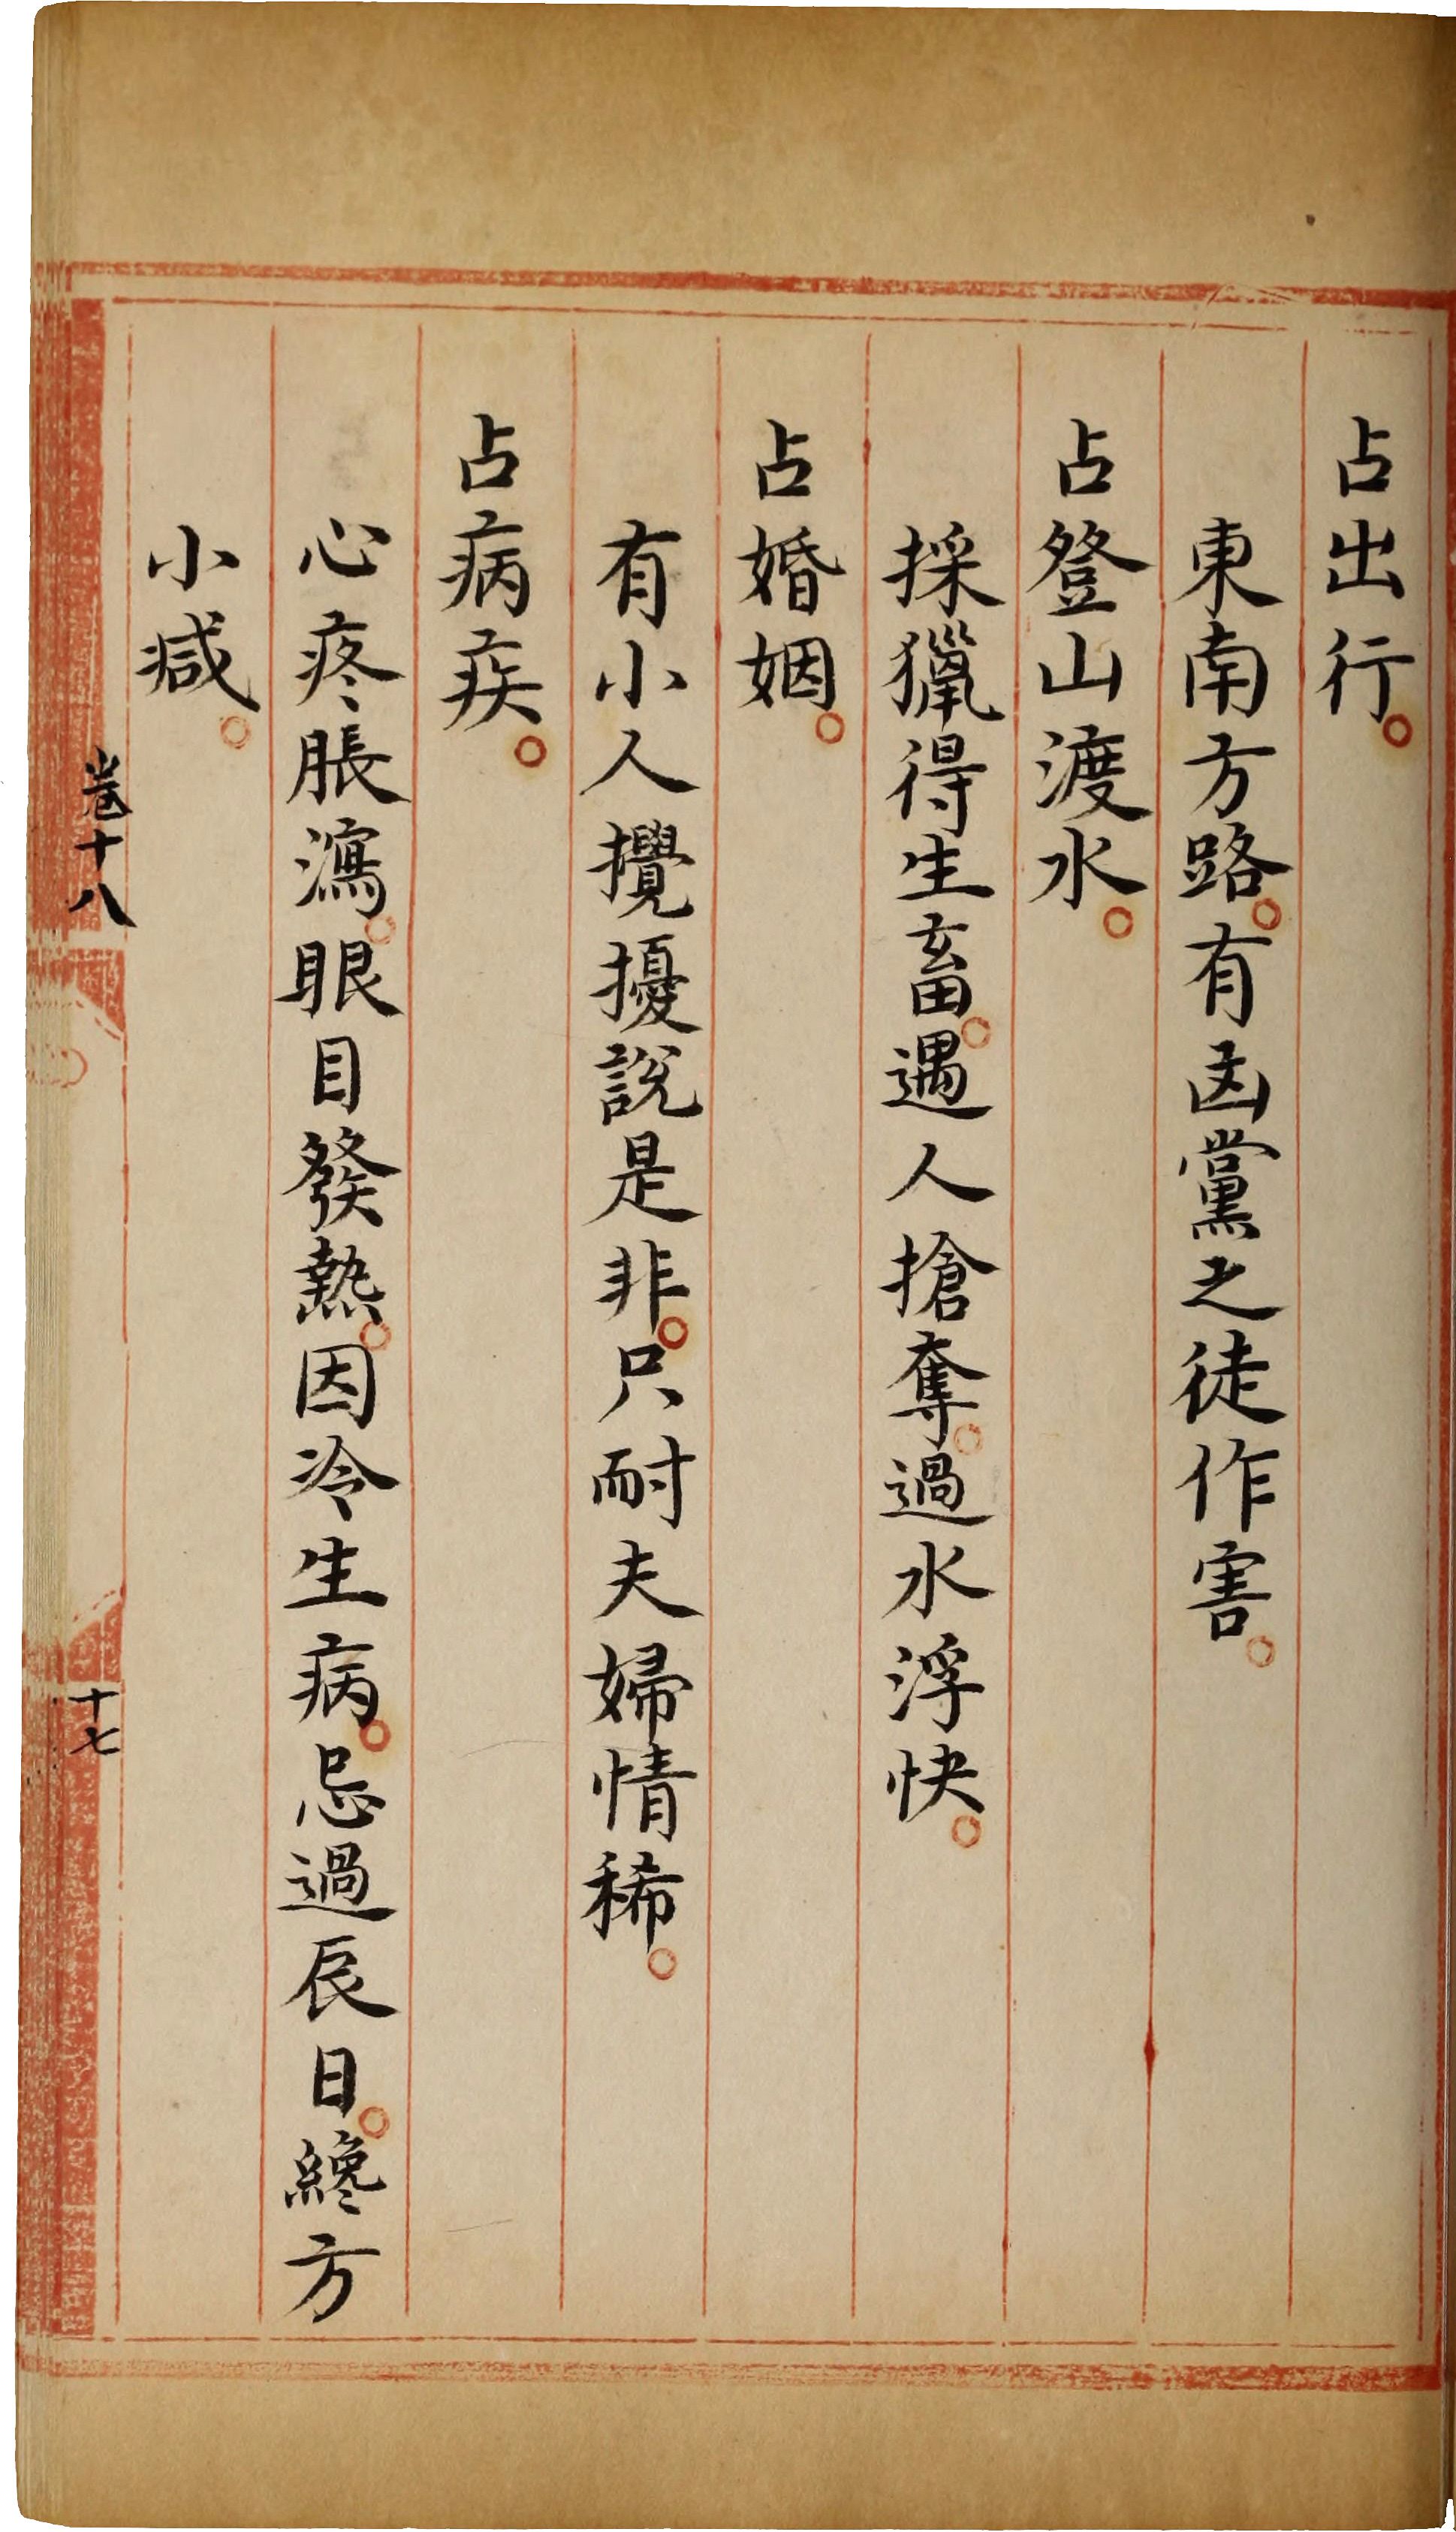 占出行。
東南方路。有凶黨之徒作害。
占登山渡水。
採獵得生畜。遇人搶奪。過水浮快。
占婚姻。
有小人攪擾說是非。只耐夫婦情稀。
占病疾。
心疼脹瀉。眼目發熱。因冷生病。忌過辰日。纔方
小減。
卷十八
十七